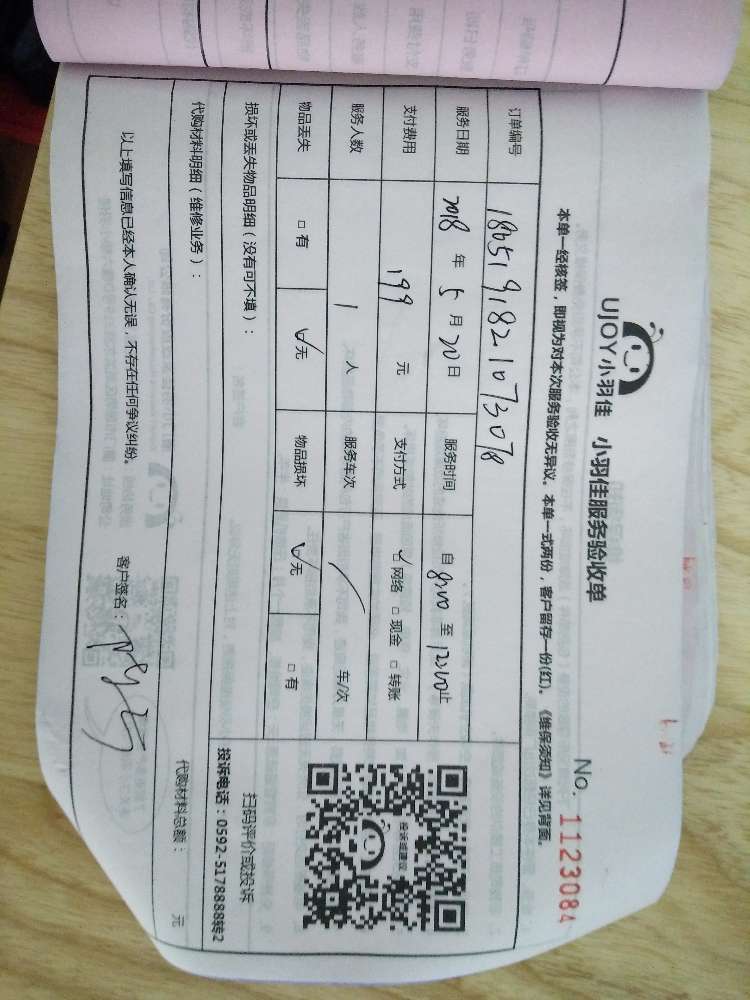 UJOY小羽佳 小羽佳服务验收单
No. 1123084
本单一经核签，即视为对本次服务验收无异议。本单一式两份，客户留存一份(红)。《维保须知》详见背面。
订单编号 1805191821073078
服务日期 2018 年 5 月 20 日 服务时间 自 8:00 至 12:00 止
支付费用 199 元 支付方式 ☑网络 □现金 □转账
服务人数 1 人 服务车次 / 车/次
物品丢失 □有 ☑无 物品损坏 ☑无 □有
投诉或建议
扫码评价或投诉
投诉电话：0592-5178888转2
损坏或丢失物品明细（没有可不填）：
代购材料明细（维修业务）： 代购材料总额： 元
以上填写信息已经本人确认无误，不存在任何争议纠纷。 客户签名：